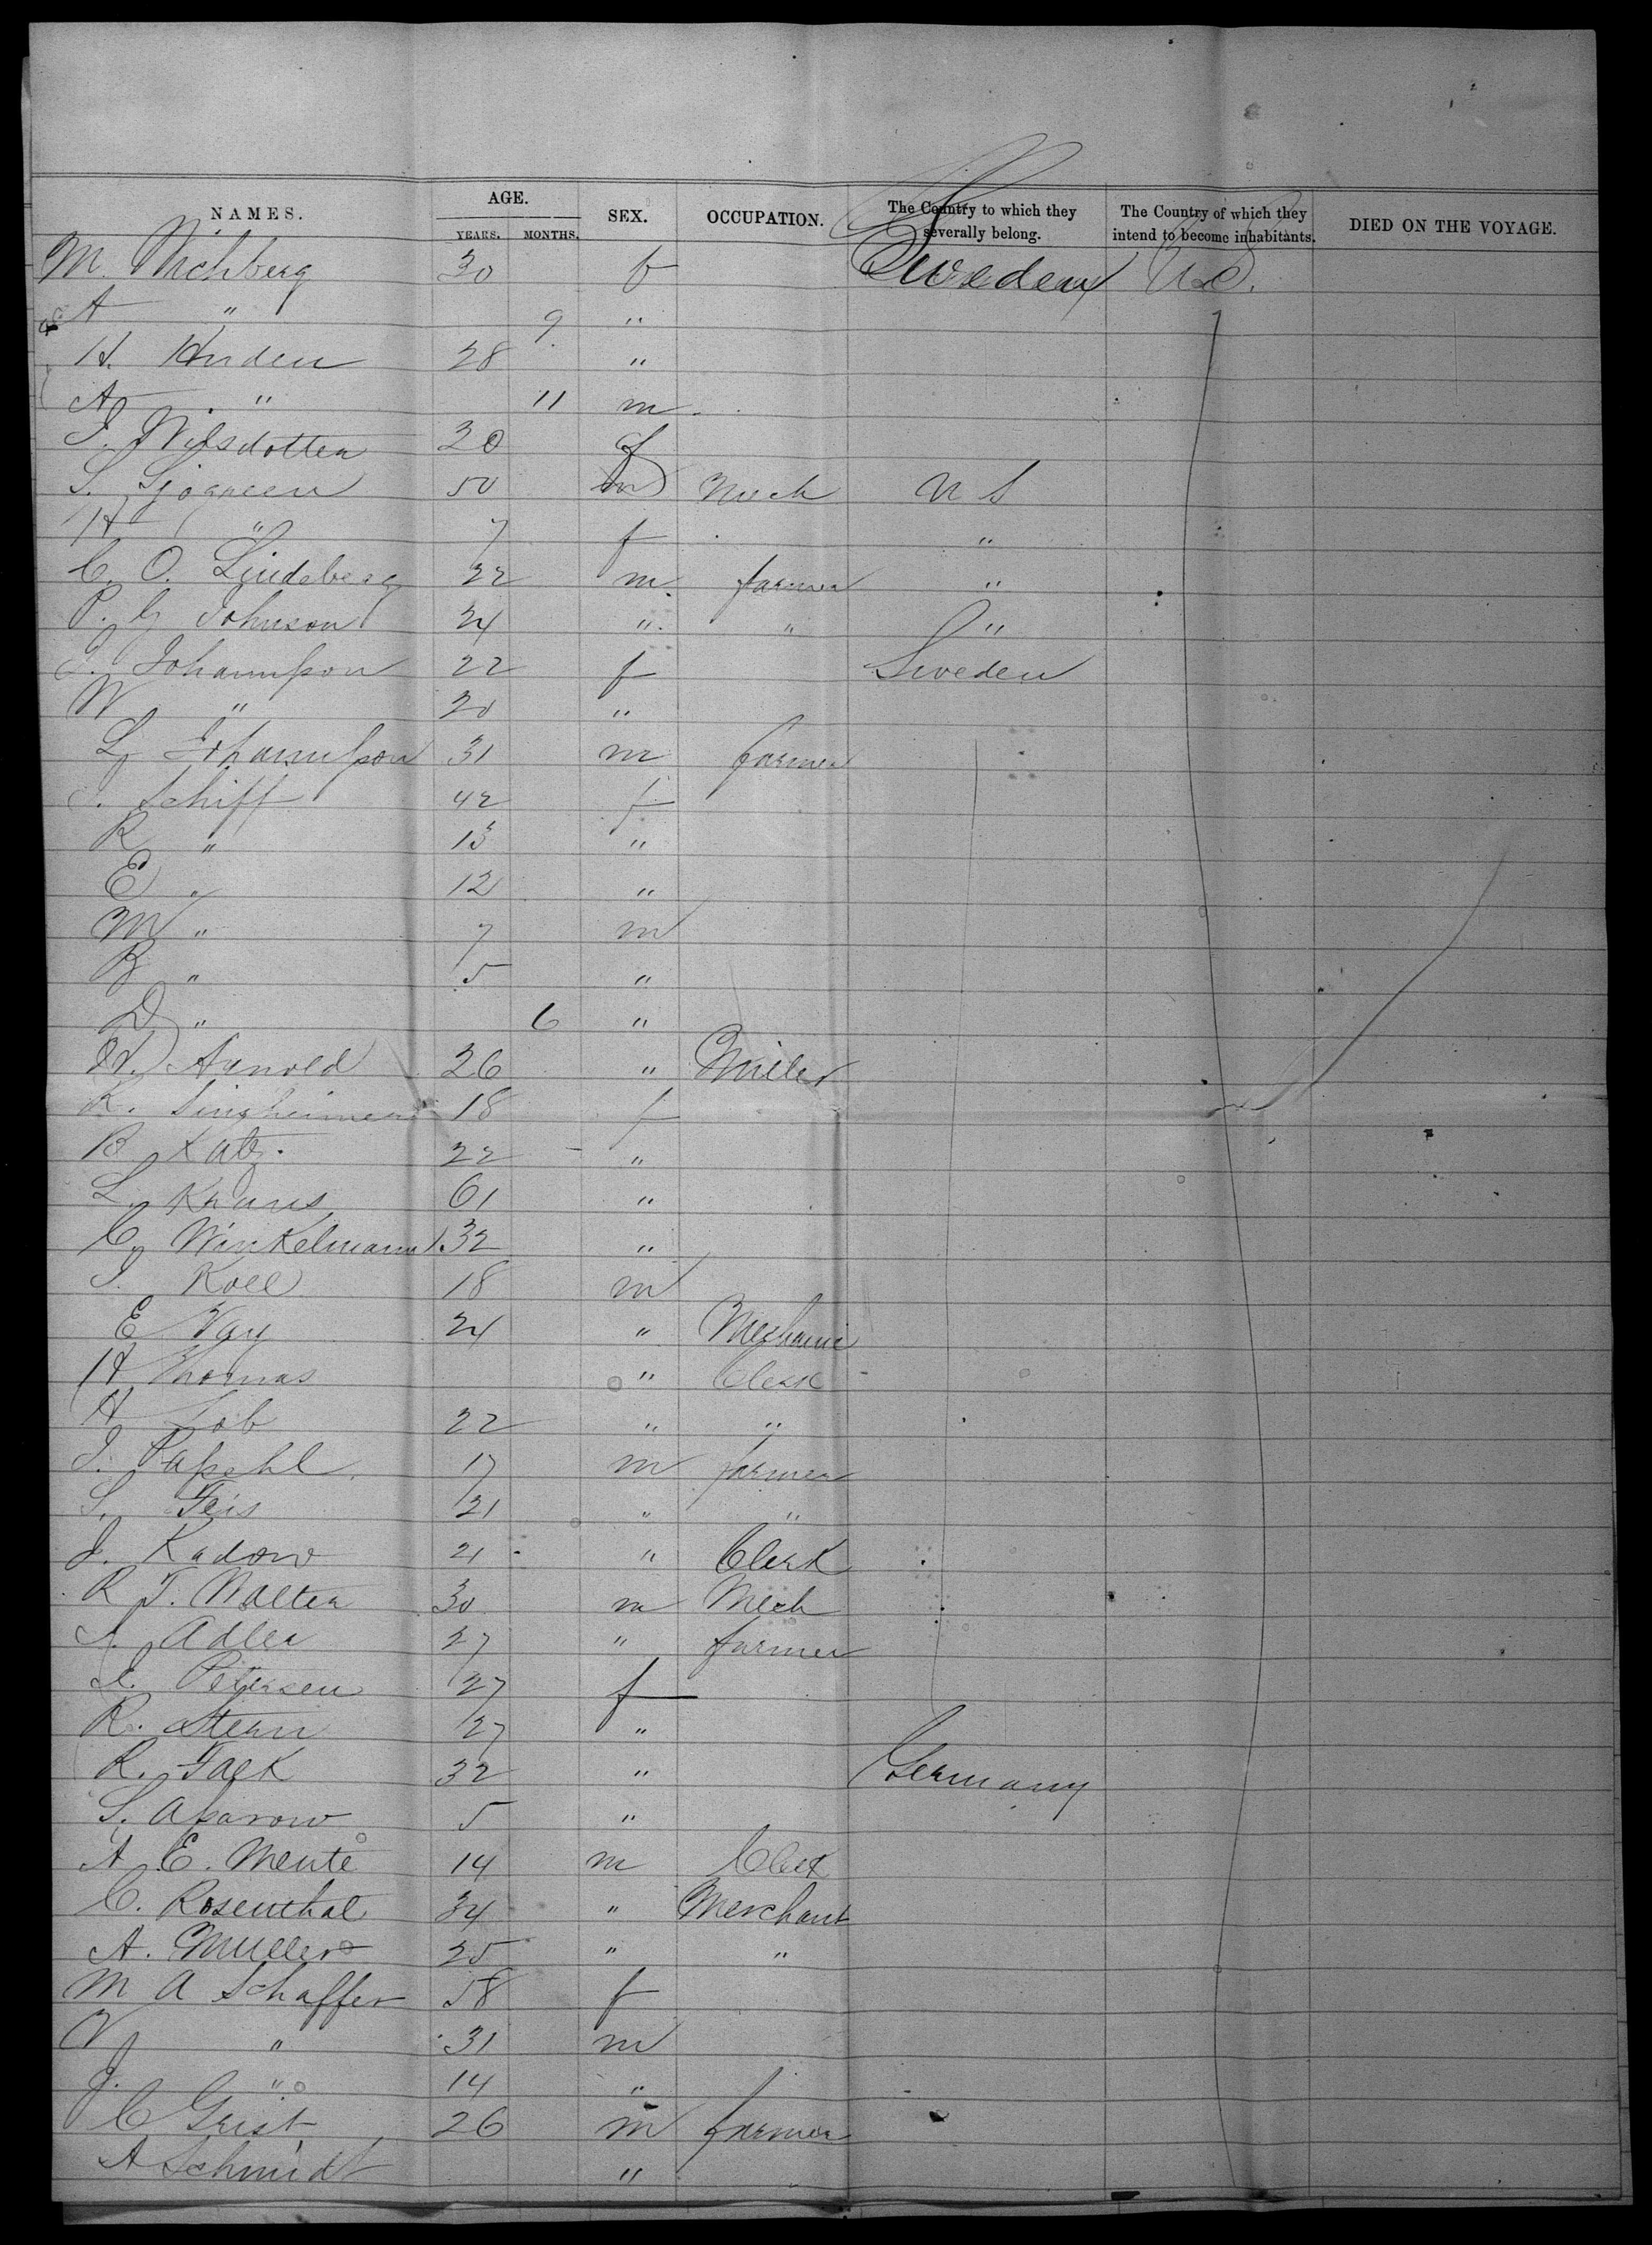 NAMES. AGE. SEX. OCCUPATION. The Country to which they severally belong. The Country of which they intend to become inhabitants. DIED ON THE VOYAGE.
YEARS. MONTHS.
M. Wichberg 30 f Sweden U.S.
A " 9 "
H. 28 "
A " 11 m
J. Nilsdotter 20 f
S. Sjogreen 50 m Mech U S
H " 7 f "
C. O. Lindeberg 22 m. farmer "
P. G Johnson 24 " " "
Johannsson 22 f Sweden
W " 20 "
L. Johannsson 31 m farmer
Schiff 42 f
R " 13 "
E " 12 "
M " 7 m
B " 5 "
D " 6 "
W. Arnold 26 " Miller
K. 18 f
B Katz. 22 "
L. Knaus 61 "
C. Winkelmann 32 "
J. Koll 18 m
E Nay 24 " Mechanic
H Thomas " Clerk
H Lob 22 " "
J. Papehl 17 m farmer
S. Feis 21 " "
J. Kadow 21 " Clerk
R T. Walter 30 m Mech
A. Adler 27 " farmer
Petersen 27 f
R. Stern 27 "
R. Falk 32 " Germany
S. 5 "
A. E. Mente 14 m Clerk
C. Rosenthal 34 " Merchant
A. Muller 25 " "
M A Schaffer 58 f
" 31 m
J. " 14 "
C Grist 26 m farmer
A Schmidt "